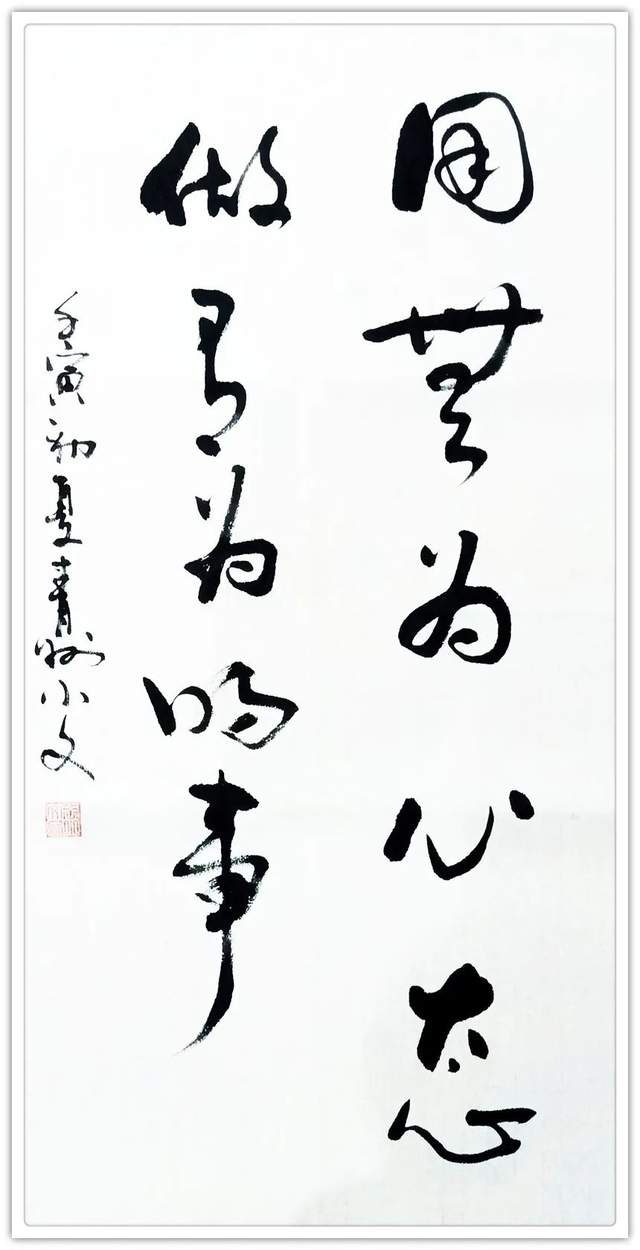 用無为心态
做有为的事
壬寅初夏青州小文